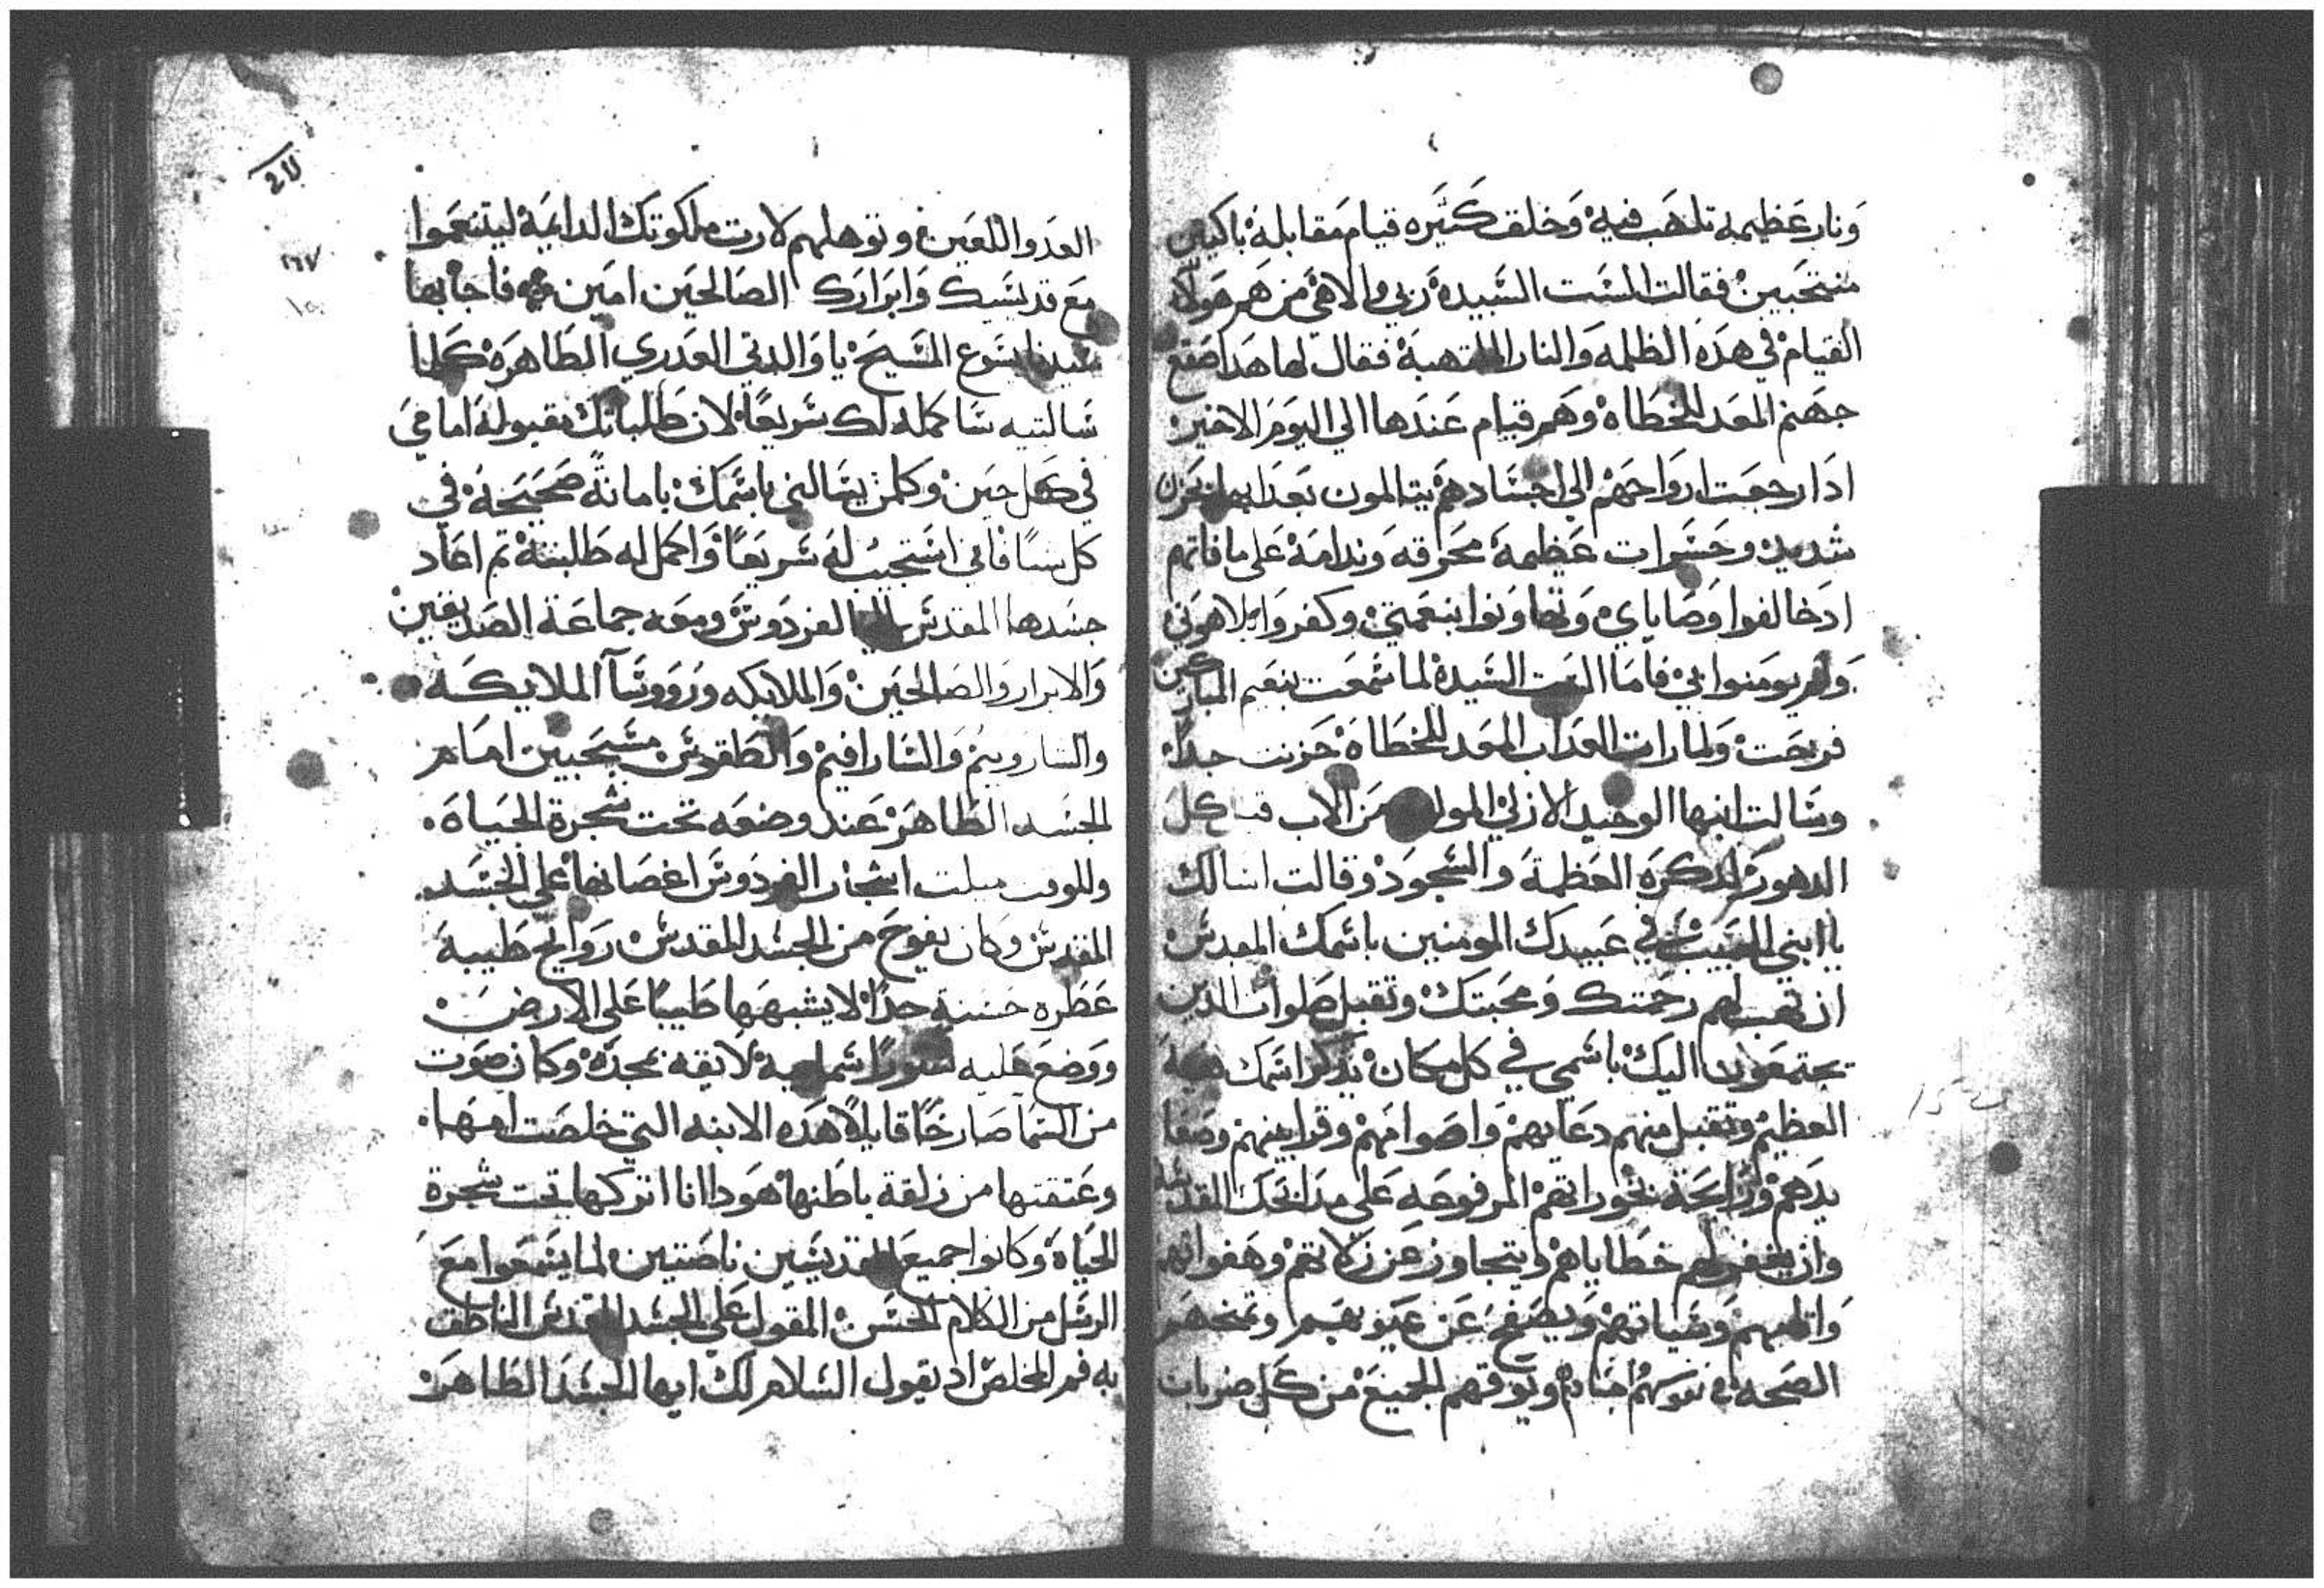 ونار عظيمه تلهب فيه وخلق كثيره قيام مقابله باكيين
منتحبين فقالت الست السيده ربي والاهي من هم هولاء
القيام في هذه الظلمه والنار الملتهبة فقال لها هدا صقع
جهنم المعد للخطاه وهم قيام عندها الي اليوم الاخير
ادا رجعت ارواحهم الي اجسادهم يتالمون بعدابها بحزن
شديد وحسرات عظيمة محرقه وندامة على ما فاتهم
اد خالفوا وصاياي وتهاونوا بنعمتي وكفروا بلاهوتي
ولم يومنوا بي فاما الست السيدة لما سمعت بنعيم المباركين
فرحت ولما رات العداب المعد للخطاة حزنت جدا
وسالت ابنها الوحيد الازلي المولود من الاب قبل كل
الدهور لدكره العظمة والسجود وقالت اسالك
يا ابني الحبيب في عبيدك المومنين باسمك المقدس
ان تهب لهم رحمتك ومحبتك وتقبل صلوات الدين
يجتمعون اليك باسمي في كل مكان يدكر اسمك
العظيم وتقبل منهم دعايهم واصوامهم وقرابينهم وصعا
يدهم ورايحة بخوراتهم المرفوعه على مدابحك المقدسه
وان يغفر لهم خطاياهم ويتجاوز عن زلاتهم وهفواتهم
واتامهم وسياتهم ويصفح عن عيوبهم وتمنحهم
الصحه في نفوسهم اجسادهم ويوقهم الجميع من كل ضربات
العدو اللعين وتوهلهم لارت ملكوتك الدايمة ليتنعموا
مع قديسيك وابرارك الصالحين امين فاجابها
سيدنا يسوع المسيح يا والدتي العدري الطاهرة كلما
سالتيه سا كمله لك سريعا لان طلباتك مقبولة امامي
في كل حين وكلمن يسالني باسمك بامانة صحيحة في
كل شيا فاني استجيب له سريعا واكمل له طلبته تم اعاد
جسدها المقدس الي الفردوس ومعه جماعة الصديقين
والابرار والصالحين والملايكه ورووسا الملايكه
والساروبيم والسارافيم والطقوس مسبحيين امام
الجسد الطاهر عند وضعه تحت شجرة الحياه
وللوقت ميلت اشجار الفردوس اغصانها على الجسد
المقدس وكان يفوح من الجسد المقدس روايح طيبة
عطره حسنة جدا لا يشبهها طيبا على الارض
ووضع عليه نورا سمايية لايقه بمجده وكان صوت
من السما صارخا قايلا هده الابنه التي خلصت امها
وعتقتها من زلقة باطنها هودا انا اتركها تحت شجرة
الحياة وكانوا جميع القديسين ناصتين لما يسمعوا مع
الرسل من الكلام الحسن المقول على الجسد المقدس الناطق
به فم المخلص اد يقول السلام لك ايها الجسد الطاهر
١٦٧